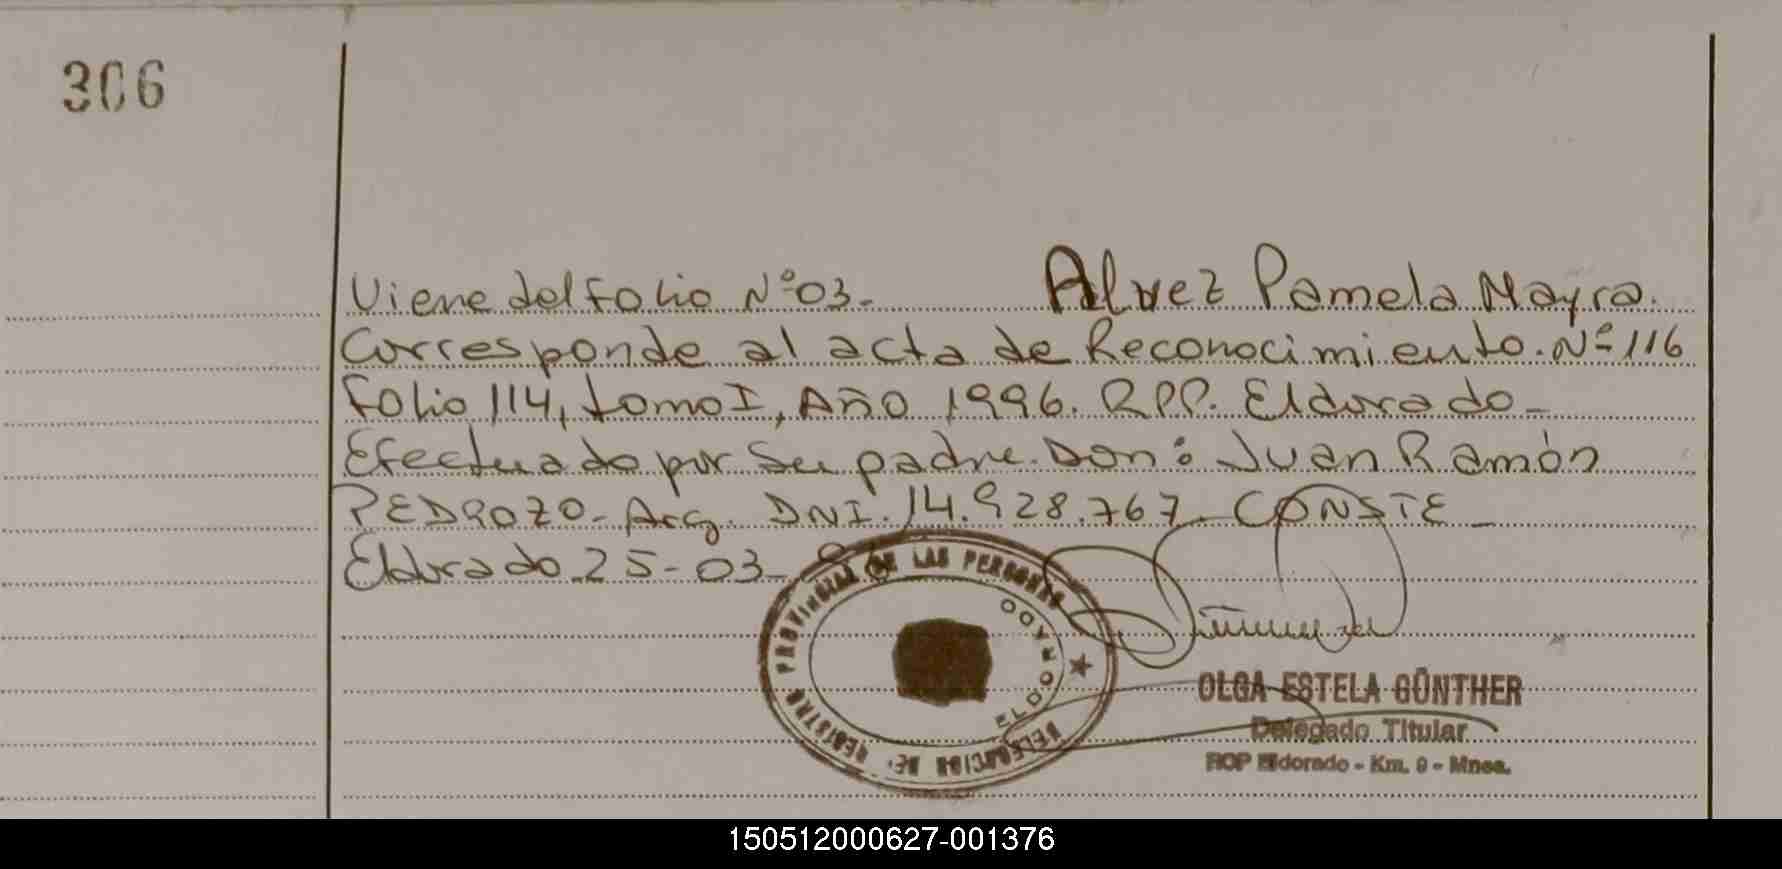 306
Viene del Folio Nº 03. Alvez Pamela Mayra.
Corresponde al acta de Reconocimiento. Nº 116
Folio 114, tomo I, Año 1996. RPP. Eldorado-
Efectuado por su padre. Don: Juan Ramón
PEDROZO- Arg. DNI. 14.928.767. CONSTE-
Eldorado 25-03-96
DELEGACION DE REGISTRO PROVINCIAL DE LAS PERSONAS
ELDORADO
OLGA ESTELA GÜNTHER
Delegado Titular
ROP Eldorado - Km. 9 - Mnes.
150512000627-001376